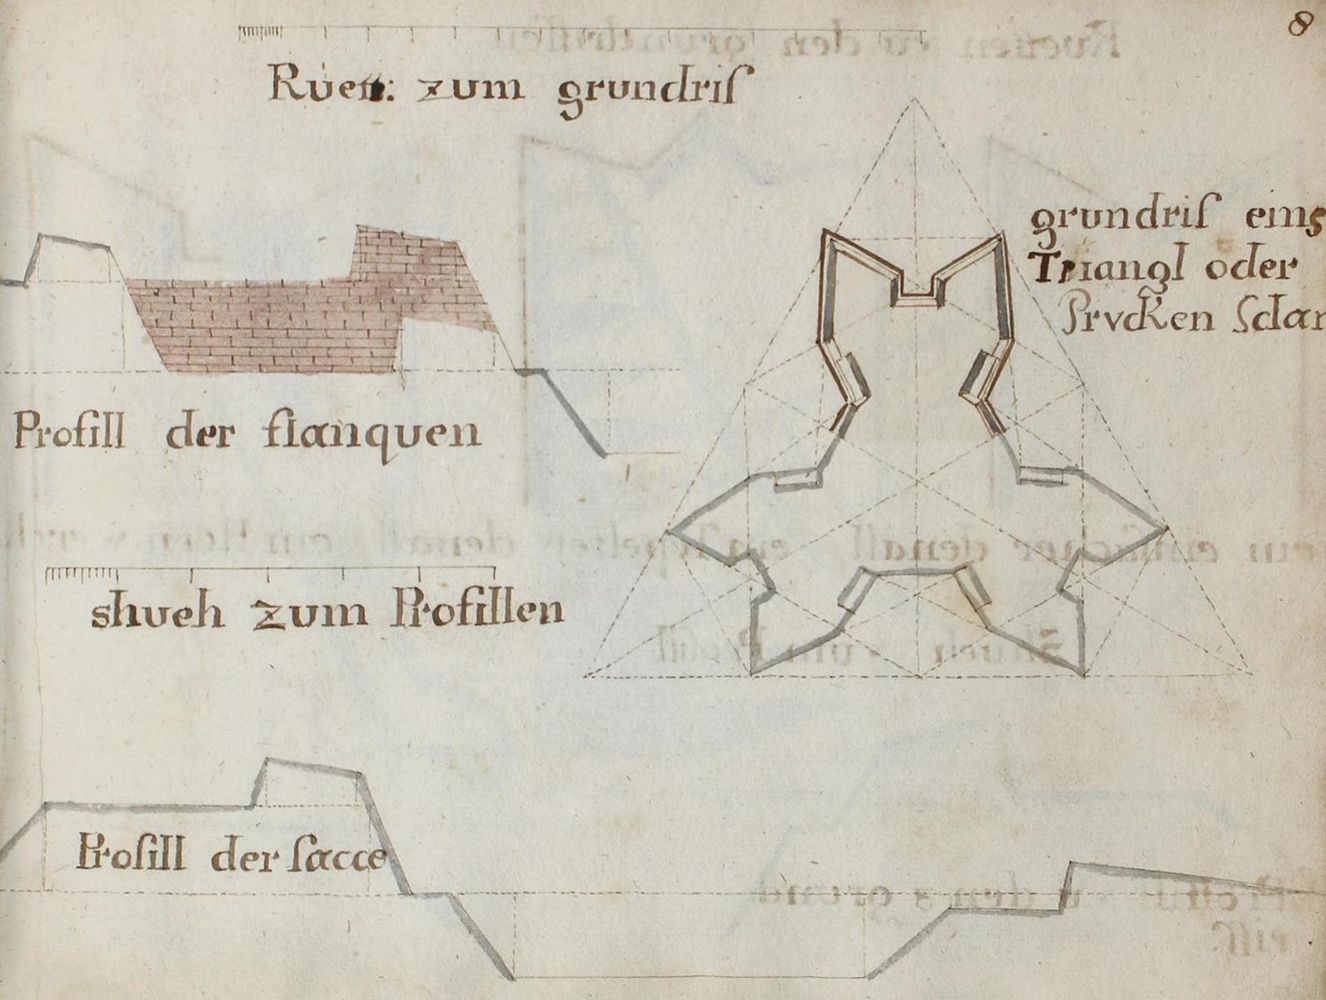 8
Rüett: zum grundriſ
grundriſ eins
Triangl oder
Profill der flanquen
shueh zum Profillen
Profill der facce